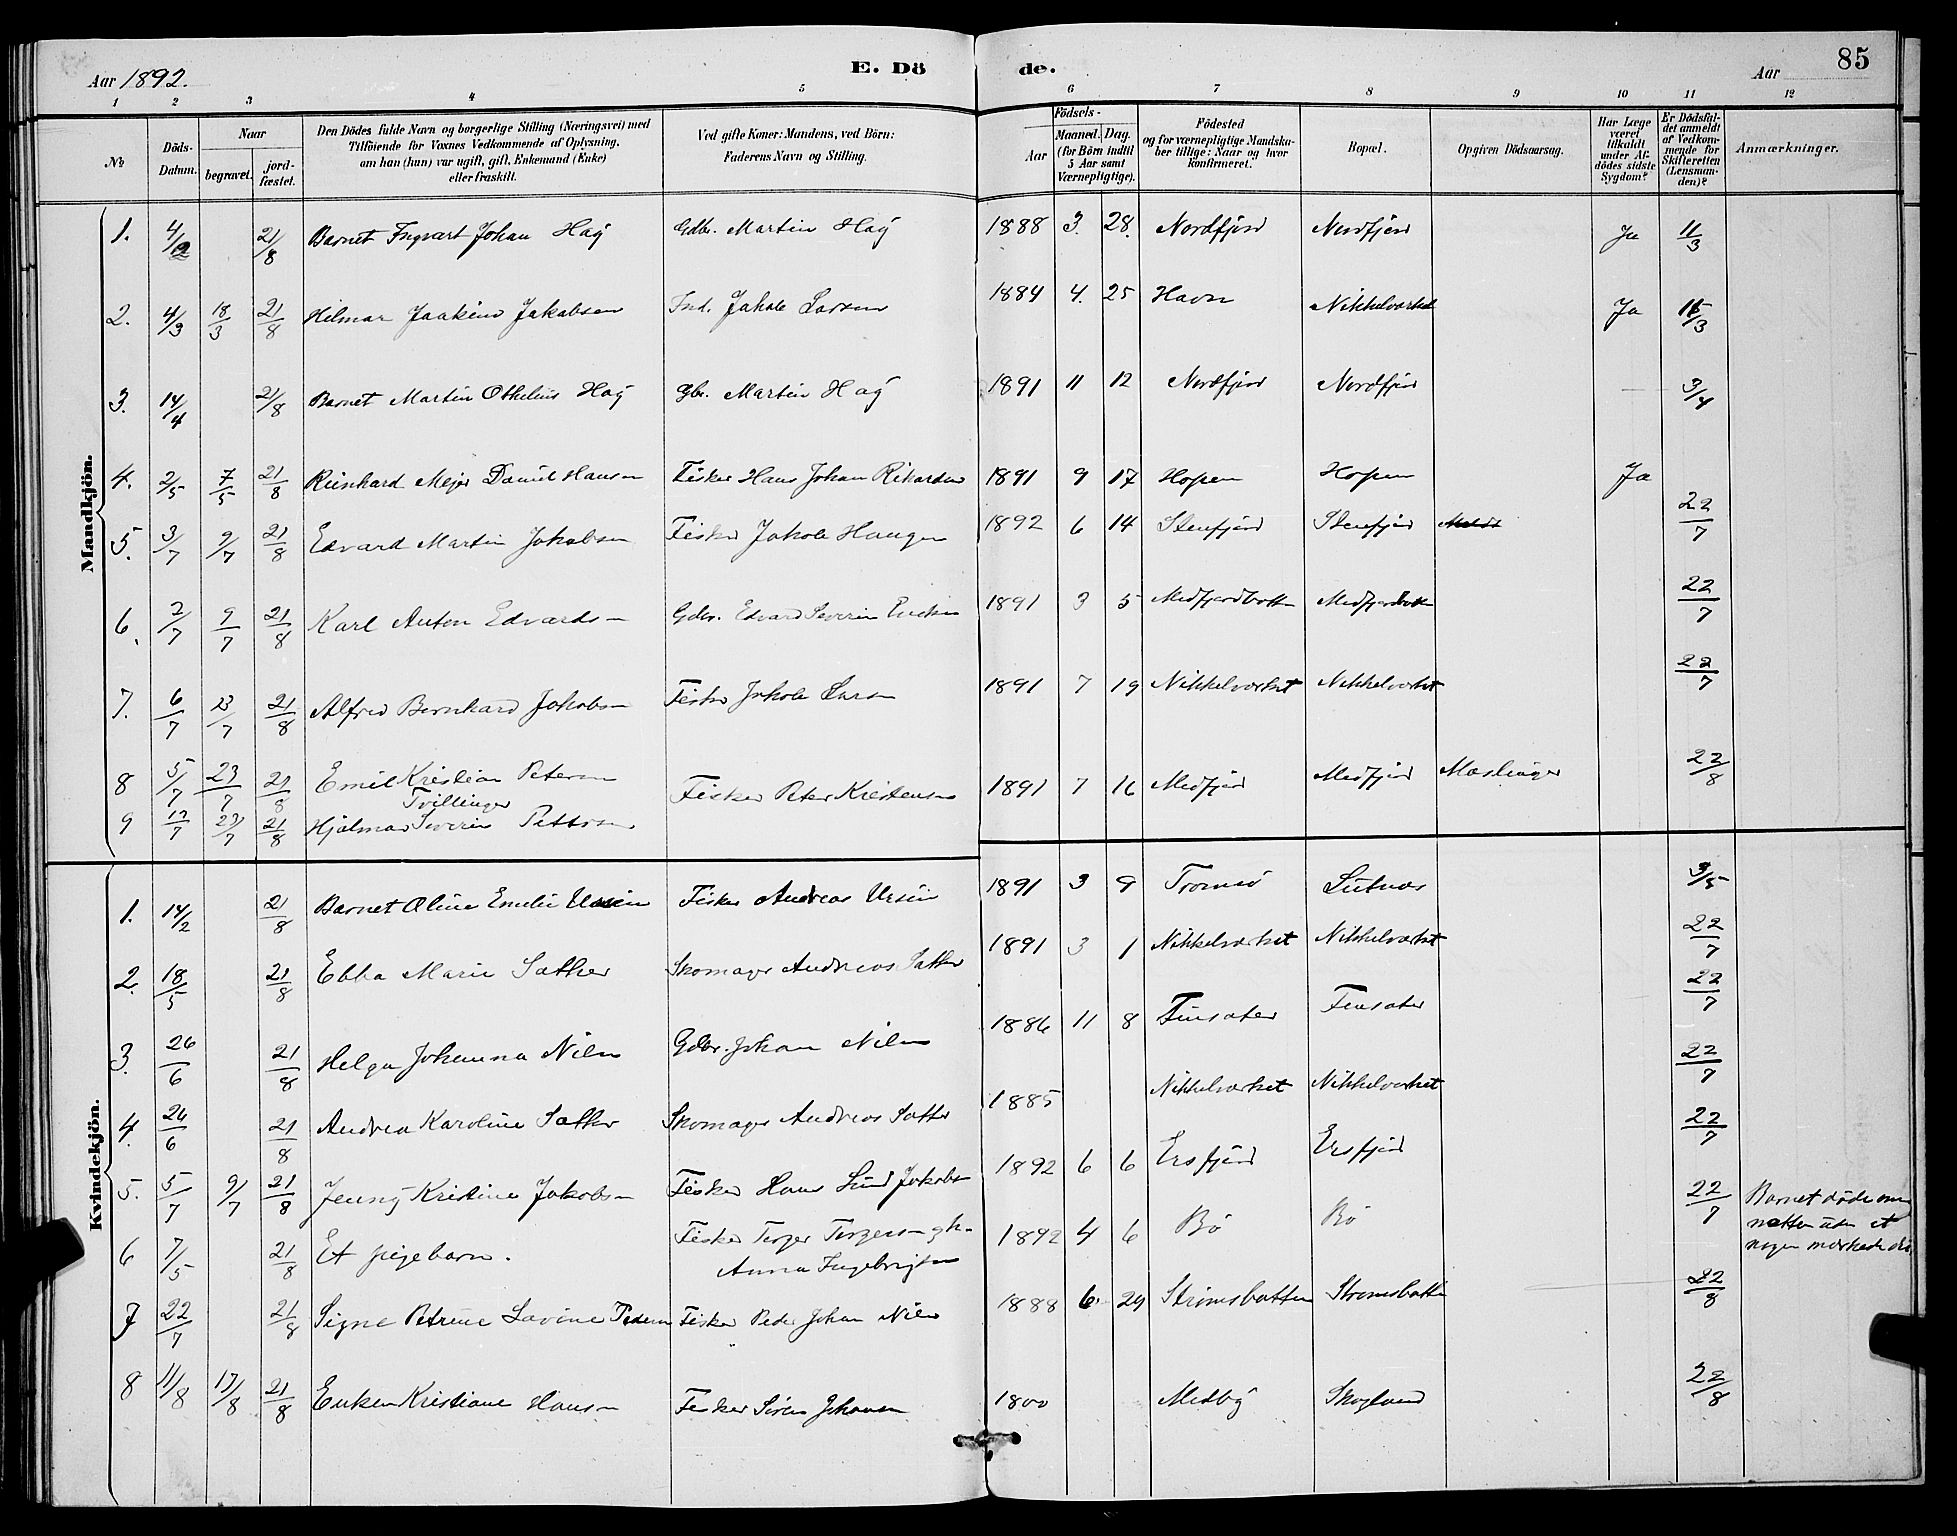 Aar 1892.
E. Dö de.
Aar
85
1 2 3 4 5 6 7 8 9 10 11 12
No
Döds-Datum.
Naar
begravet.
jord-fæstet.
Den Dödes fulde Navn og borgerlige Stilling (Næringsvei) med
Tilföiende for Voxnes Vedkommende af Oplysning,
om han (hun) var ugift, gift, Enkemand (Enke)
eller fraskilt.
Ved gifte Koner: Mandens, ved Börn:
Faderens Navn og Stilling.
Födsels-
Aar
Maaned. Dag.
(for Börn indtil
5 Aar samt
Værnepligtige).
Födested
og for værnepligtige Mandska-
ber tillige: Naar og hvor
konfirmeret.
Bopæl.
Opgiven Dödsaarsag.
Har Læge
været
tilkaldt
under Af-
dödes sidste
Sygdom?
Er Dödsfal-
det anmeldt
af Vedkom-
mende for
Skifteretten
(Lensman-
den)?
Anmærkninger.
Mandkjön.
1. 4/2 21/8 Barnet Ingvart Johan Høg Gdbr. Martin Høg 1888 3. 28. Nordfjord Nordfjord Ja 11/3
2. 4/3 18/3 21/8 Hilmar Joakim Jakobsen Ind. Jakob Larsen 1884 4. 25 Havn Nikkelværket Ja 15/3
3. 14/4 21/8 Barnet Martin Othelius Høg Gbr. Martin Høg 1891 11 12 Nordfjord Nordfjord 3/4
4. 2/5 7/5 21/8 Reinhard Mejer Daniel Hansen Fisker Hans Johan Rikardsen 1891 9 17 Hopen Hopen Ja
5. 3/7 9/7 21/8 Edvard Martin Jakobsen Fisker Jakob Haugen 1892 6 14 Stenfjord Stenfjord 22/7
6. 2/7 9/7 21/8 Karl Anton Edvardsen Gdbr. Edvard Severin 1891 3 5 Medfjordbotten Medfjordbotten 22/7
7. 6/7 23/7 21/8 Alfred Bernhard Jakobsen Fisker Jakob Larsen 1891 7 19 Nikkelværket Nikkelværket 22/7
8 5/7 23/7 21/8 Emil Kristian Petersen
Tvillinger
Fisker Peter Kristensen 1891 7 16 Medfjord Medfjord Mæslinger 22/8
9 17/7 23/7 21/8 Hjalmar Severin Pettersen
Kvindekjön.
1. 14/2 21/8 Barnet Oline Emilie Ursin Fisker Andreas Ursin 1891 3 9 Tromsö 3/5
2. 18/5 21/8 Ebba Marie Sæther Skomager Andreas Sæther 1891 3 1 Nikkelværket Nikkelværket 22/7
3. 26/6 21/8 Helga Johanna Nilsen Gdbr. Johan Nilsen 1886 11 8 Finsæter Finsæter 22/7
4. 24/6 21/8 Andrea Karoline Sæther Skomager Andreas Sæther 1885 Nikkelværket Nikkelværket 22/7
5. 5/7 9/7 21/8 Jenny Kristine Jakobsen Fisker Hans Lind Jakobsen 1892 6 6 Ersfjord Ersfjord 22/7
6 7/5 21/8 Et pigebarn. Fisker Torger Torgersen
Anna Ingebrigtsen 1892 4 6 Bö Bö 22/7 Barnet döde om
natten uden at
nogen mærkede det
7 22/7 21/8 Signe Petrine Lovine Pedersen Fisker Peder Johan Nilsen 1888 6. 24 Strömsbotten Strömsbotten 22/8
8 11/8 17/8 21/8 Enken Kristiane Hansen Fisker Sören Johansen 1800 Medby Skogland 22/8